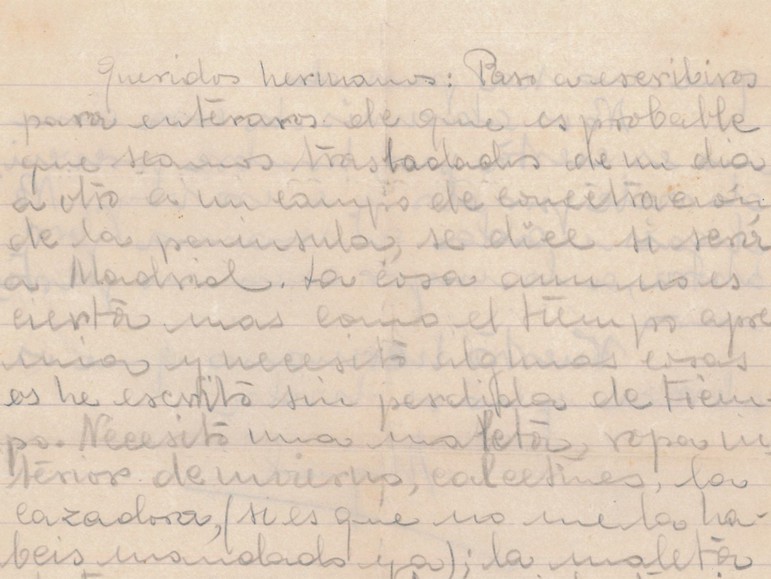 Queridos hermanos: Paso a escribiros
para enteraros de que es probable
que seamos trasladados de un dia
a otro a un campo de concetración
de la peninsula, se dice si será
a Madrid. La cosa aun no es
cierta mas como el tiempo apre
mia y necesito algunas cosas
os he escrito sin perdida de tiem-
po. Necesito una maleta, ropa in
terior de invierno, calcetines, la
cazadora, (si es que no me la ha-
beis mandado ya); la maleta